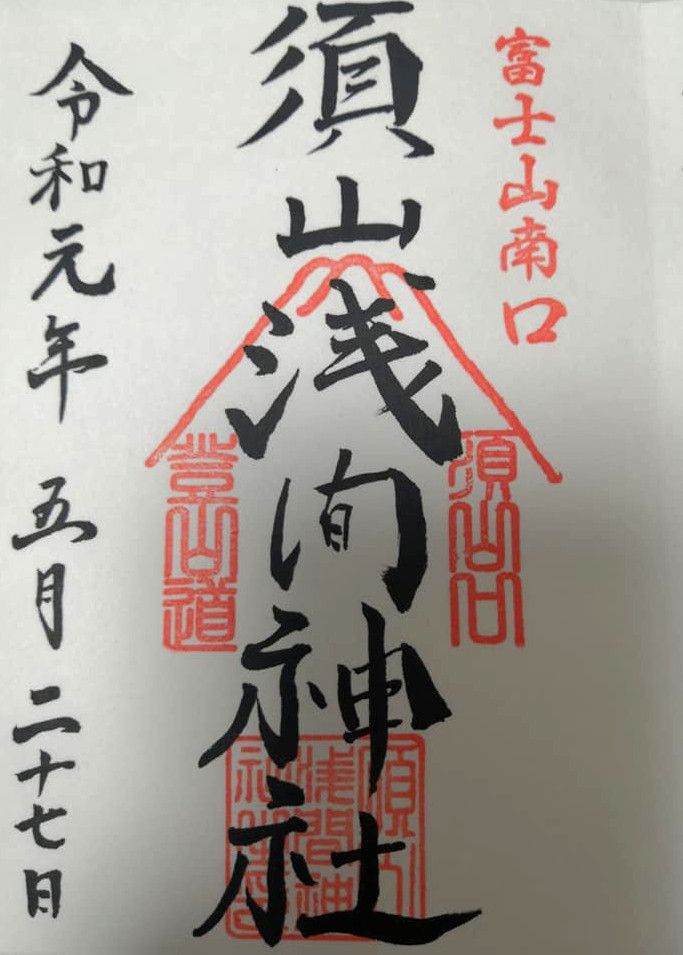 富士山南口
須山口
須山浅間神社
登山道
令和元年 五月 二十七日